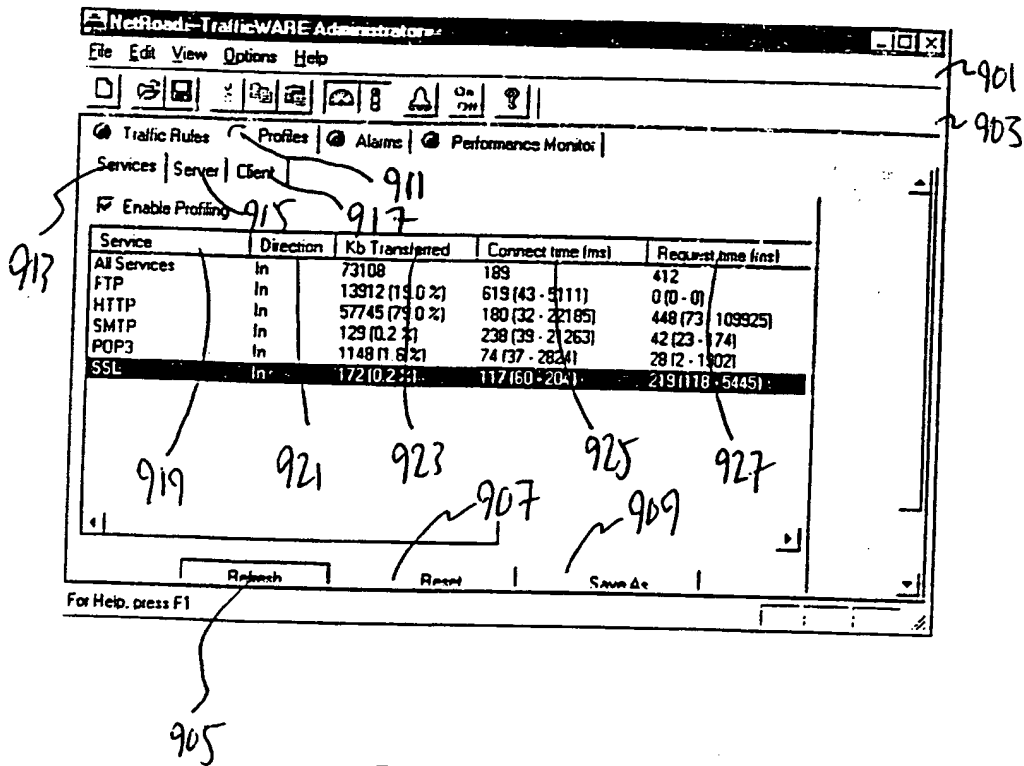 NetRoads-TrafficWARE Administrator
File Edit View Options Help
On
Off
901
903
Traffic Rules Profiles Alarms Performance Monitor
Services Server Client
911
Enable Profiling
915 917
913
Service Direction Kb Transferred Connect time (ms) Request time (ms)
All Services In 73108 189 412
FTP In 13912 (19.0 %) 619 (43 - 5111) 0 (0 - 0)
HTTP In 57745 (79.0 %) 180 (32 - 22185) 448 (73 - 109925)
SMTP In 129 (0.2 %) 238 (39 - 21263) 42 (23 - 174)
POP3 In 1148 (1.6 %) 74 (37 - 2824) 28 (2 - 1902)
SSL In 172 (0.2 %) 117 (60 - 204) 219 (118 - 5445)
919 921 923 925 927
907 909
Refresh Reset Save As
For Help, press F1
905